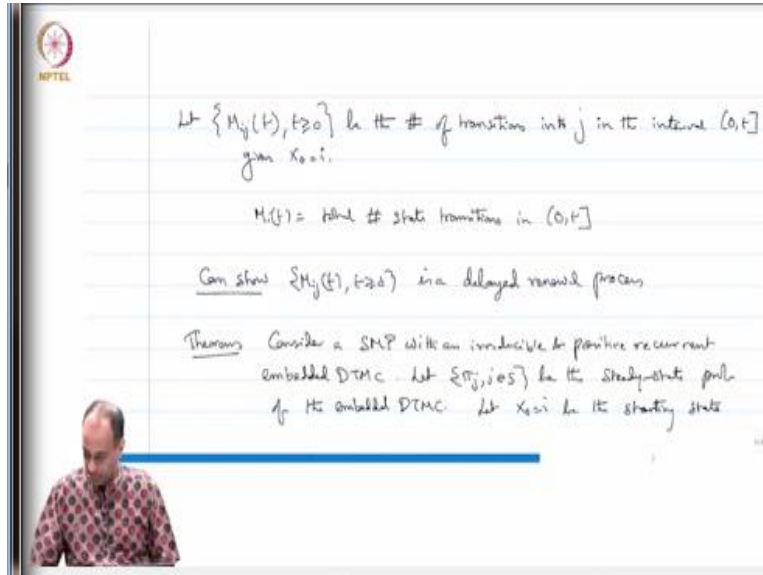 NPTEL
Let {M_ij(t), t≥0} be the # of transitions into j in the interval (0,t]
given X₀=i.
M_i(t) = total # state transitions in (0,t]
Can show {M_ij(t), t≥0} is a delayed renewal process
Theorem Consider a SMP with an irreducible & positive recurrent
embedded DTMC. Let {π_j, j∈S} be the steady-state prob
of the embedded DTMC. Let X₀=i be the starting state